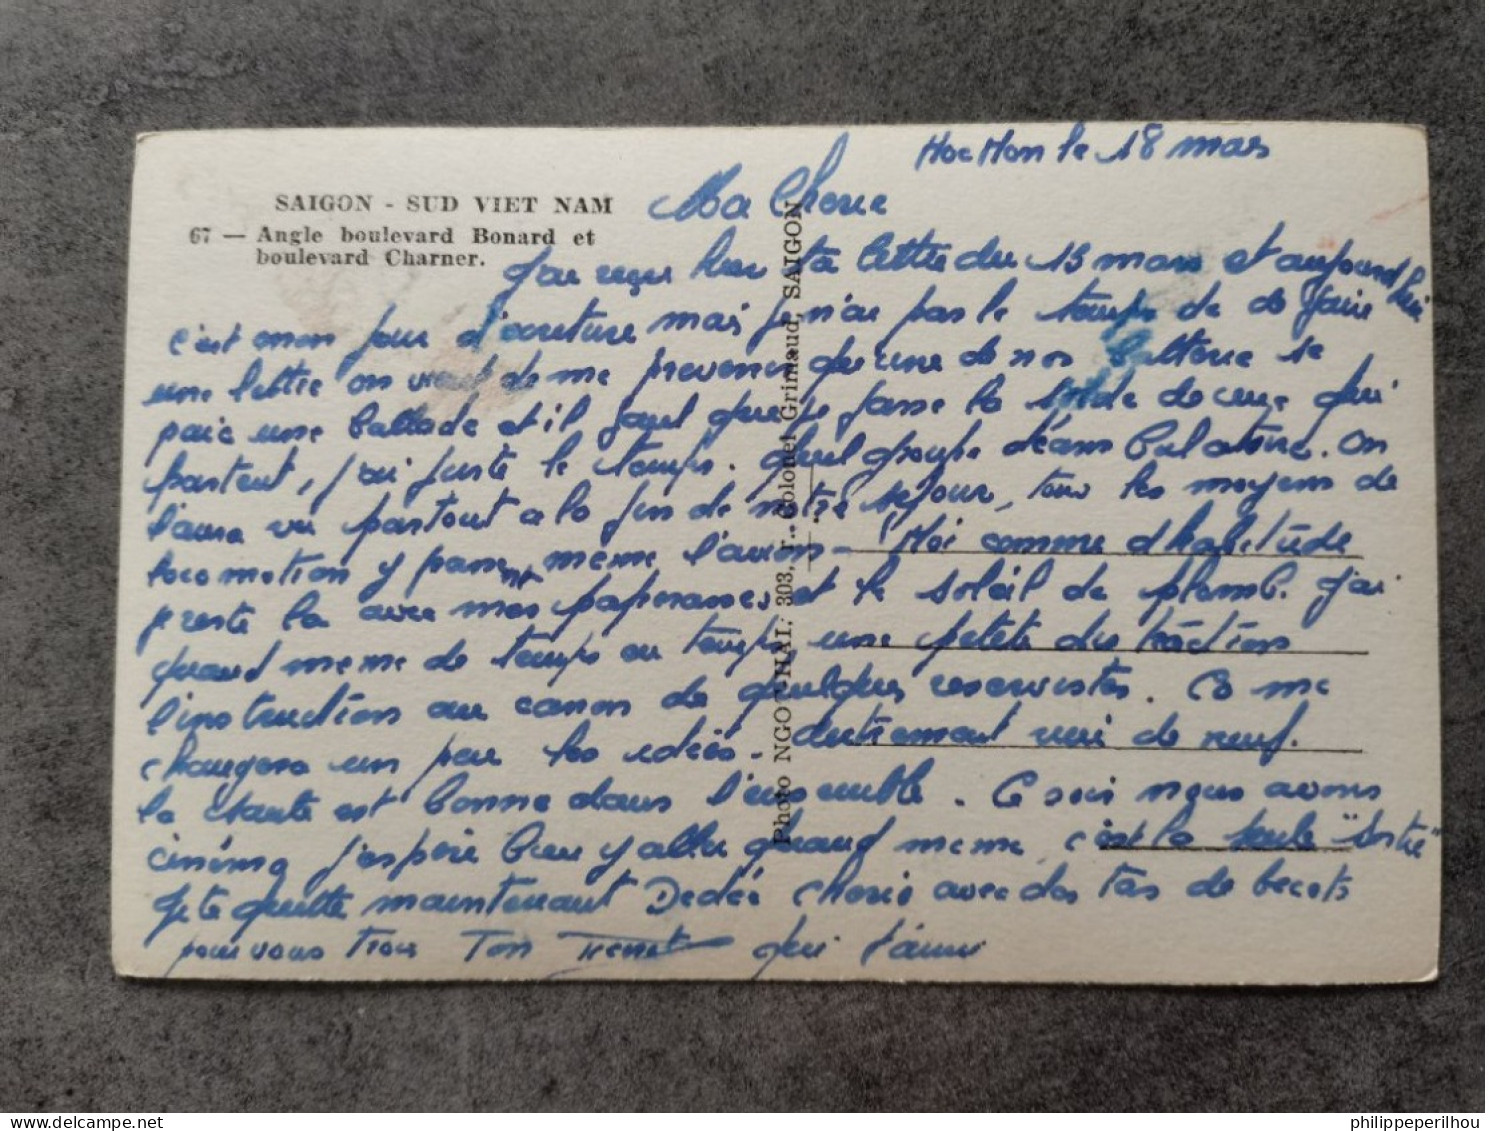 HocMon le 18 mars
SAIGON - SUD VIET NAM
67 — Angle boulevard Bonard et
boulevard Charner.
Ma Cherie
J'ai reçu hier ta lettre du 13 mars et aujourd'hui
c'est mon jour d'ecriture mais je n'ai pas le temps de faire
une lettre on vient de me prevenir qu'une de nos batterie se
paie une ballade et il faut que je fasse la solde de ceux qui
partent, j'ai juste le temps. quel groupe d'éambulatoire. On
l'aura vu partout a la fin de notre séjour, tous les moyens de
locomotion y passent même l'avion - Moi comme d'habitude
je reste la avec mes paperasses et le soleil de plomb. J'ai
quand meme de temps en temps une petite distraction
l'instruction au canon de quelques reservistes. Ca me
changera un peu les idées - Autrement rien de neuf.
la santé est bonne dans l'ensemble. Ce soir nous avons
cinéma j'espère bien y aller quand meme c'est la seule "sortie"
Je te quitte maintenant Dedée cherie avec des tas de becots
pour vous trois Ton qui t'aime
Photo NGO THAI. 303, r. Colonel Grimaud, SAIGON
philippeperilhou